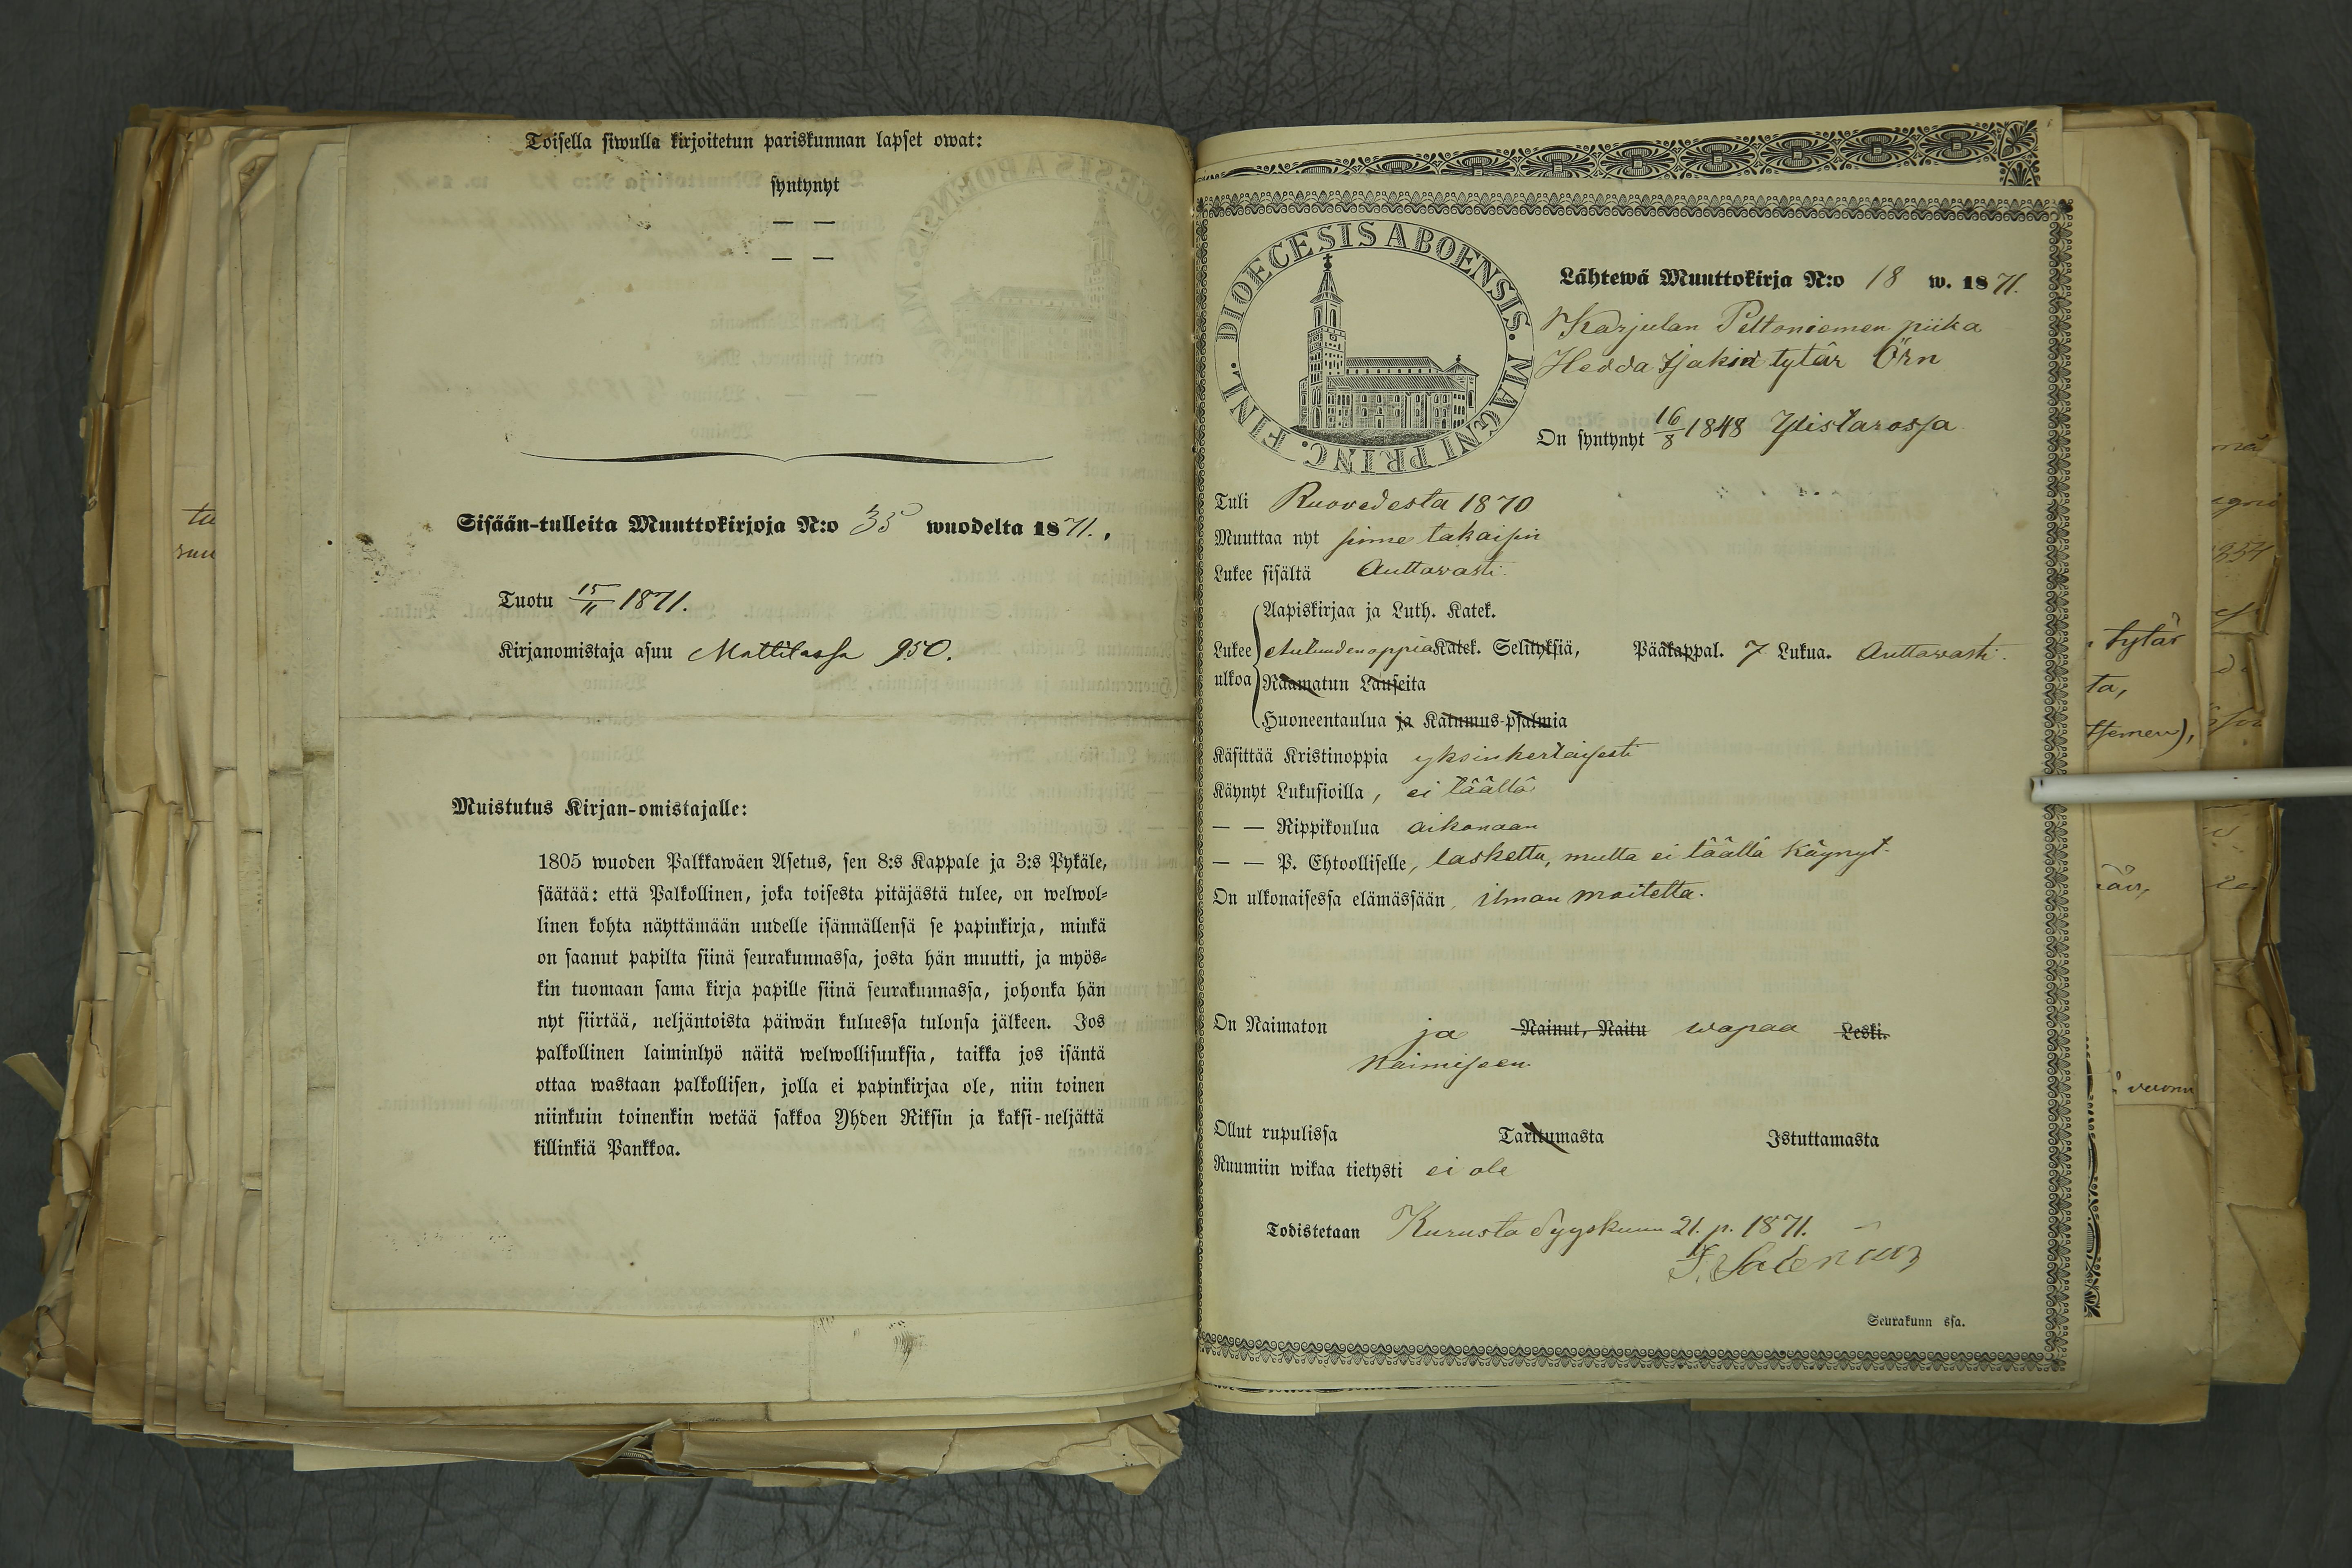 Toisella siwulla kirjoitetun pariskunnan lapset owat:
syntynyt
— —
— —
Sisään-tulleita Muuttokirjoja N:o 35 wuodelta 1871.
Tuotu 15/11 1871.
Kirjanomistaja asuu Mattilassa 950.
Muistutus Kirjan-omistajalle:
1805 wuoden Palkkawäen Asetus, sen 8:s Kappale ja 3:s Pykäle,
säätää: että Palkollinen, joka toisesta pitäjästä tulee, on welwol-
linen kohta näyttämään uudelle isännällensä se papinkirja, minkä
on saanut papilta siinä seurakunnassa, josta hän muutti, ja myös-
kin tuomaan sama kirja papille siinä seurakunnassa, johonka hän
nyt siirtää, neljäntoista päiwän kuluessa tulonsa jälkeen. Jos
palkollinen laiminlyö näitä welwollisuuksia, taikka jos isäntä
ottaa wastaan palkollisen, jolla ei papinkirjaa ole, niin toinen
niinkuin toinenkin wetää sakkoa Yhden Riksin ja kaksi-neljättä
killinkiä Pankkoa.
DIOECESIS ABOENSIS. MAGNI PRINC. FINL.
Lähtewä Muuttokirja N:o 18 w. 1871.
Karjulan Peltoniemen piika
Hedda Isakin tytär Örn
On syntynyt 16/8 1848 Ylistarossa
Tuli Ruovedesta 1870
Muuttaa nyt sinne takaisin
Lukee sisältä Auttavasti.
Aapiskirjaa ja Luth. Katek.
Lukee Autuudenoppia Katek. Selityksiä, Pääkappal. 7 Lukua. Auttavasti.
ulkoa Raamatun Lauseita
Huoneentaulua ja Katumus-psalmia
Käsittää Kristinoppia yksinkertaisesti
Käynyt Lukusioilla, ei täällä
— — Rippikoulua aikanaan
— — P. Ehtoolliselle, laskettu, mutta ei täällä käynyt.
On ulkonaisessa elämässään, ilman moitetta.
On Naimaton ja Nainut, Naitu wapaa Leski.
Naimiseen.
Ollut rupulissa Tarttumasta Istuttamasta
Ruumiin wikaa tietysti ei ole
Todistetaan Kurusta Syyskuun 21. p. 1871.
Seurakunn ssa.
tu
tytär
ta,